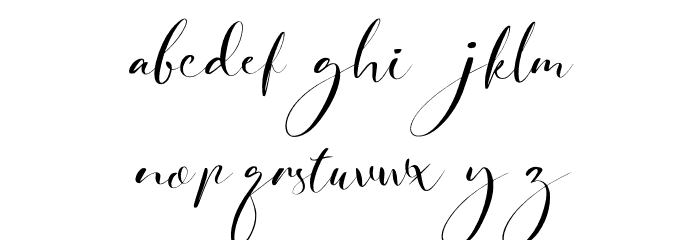 abcdef ghi jklm
nop qrstuvwx y z